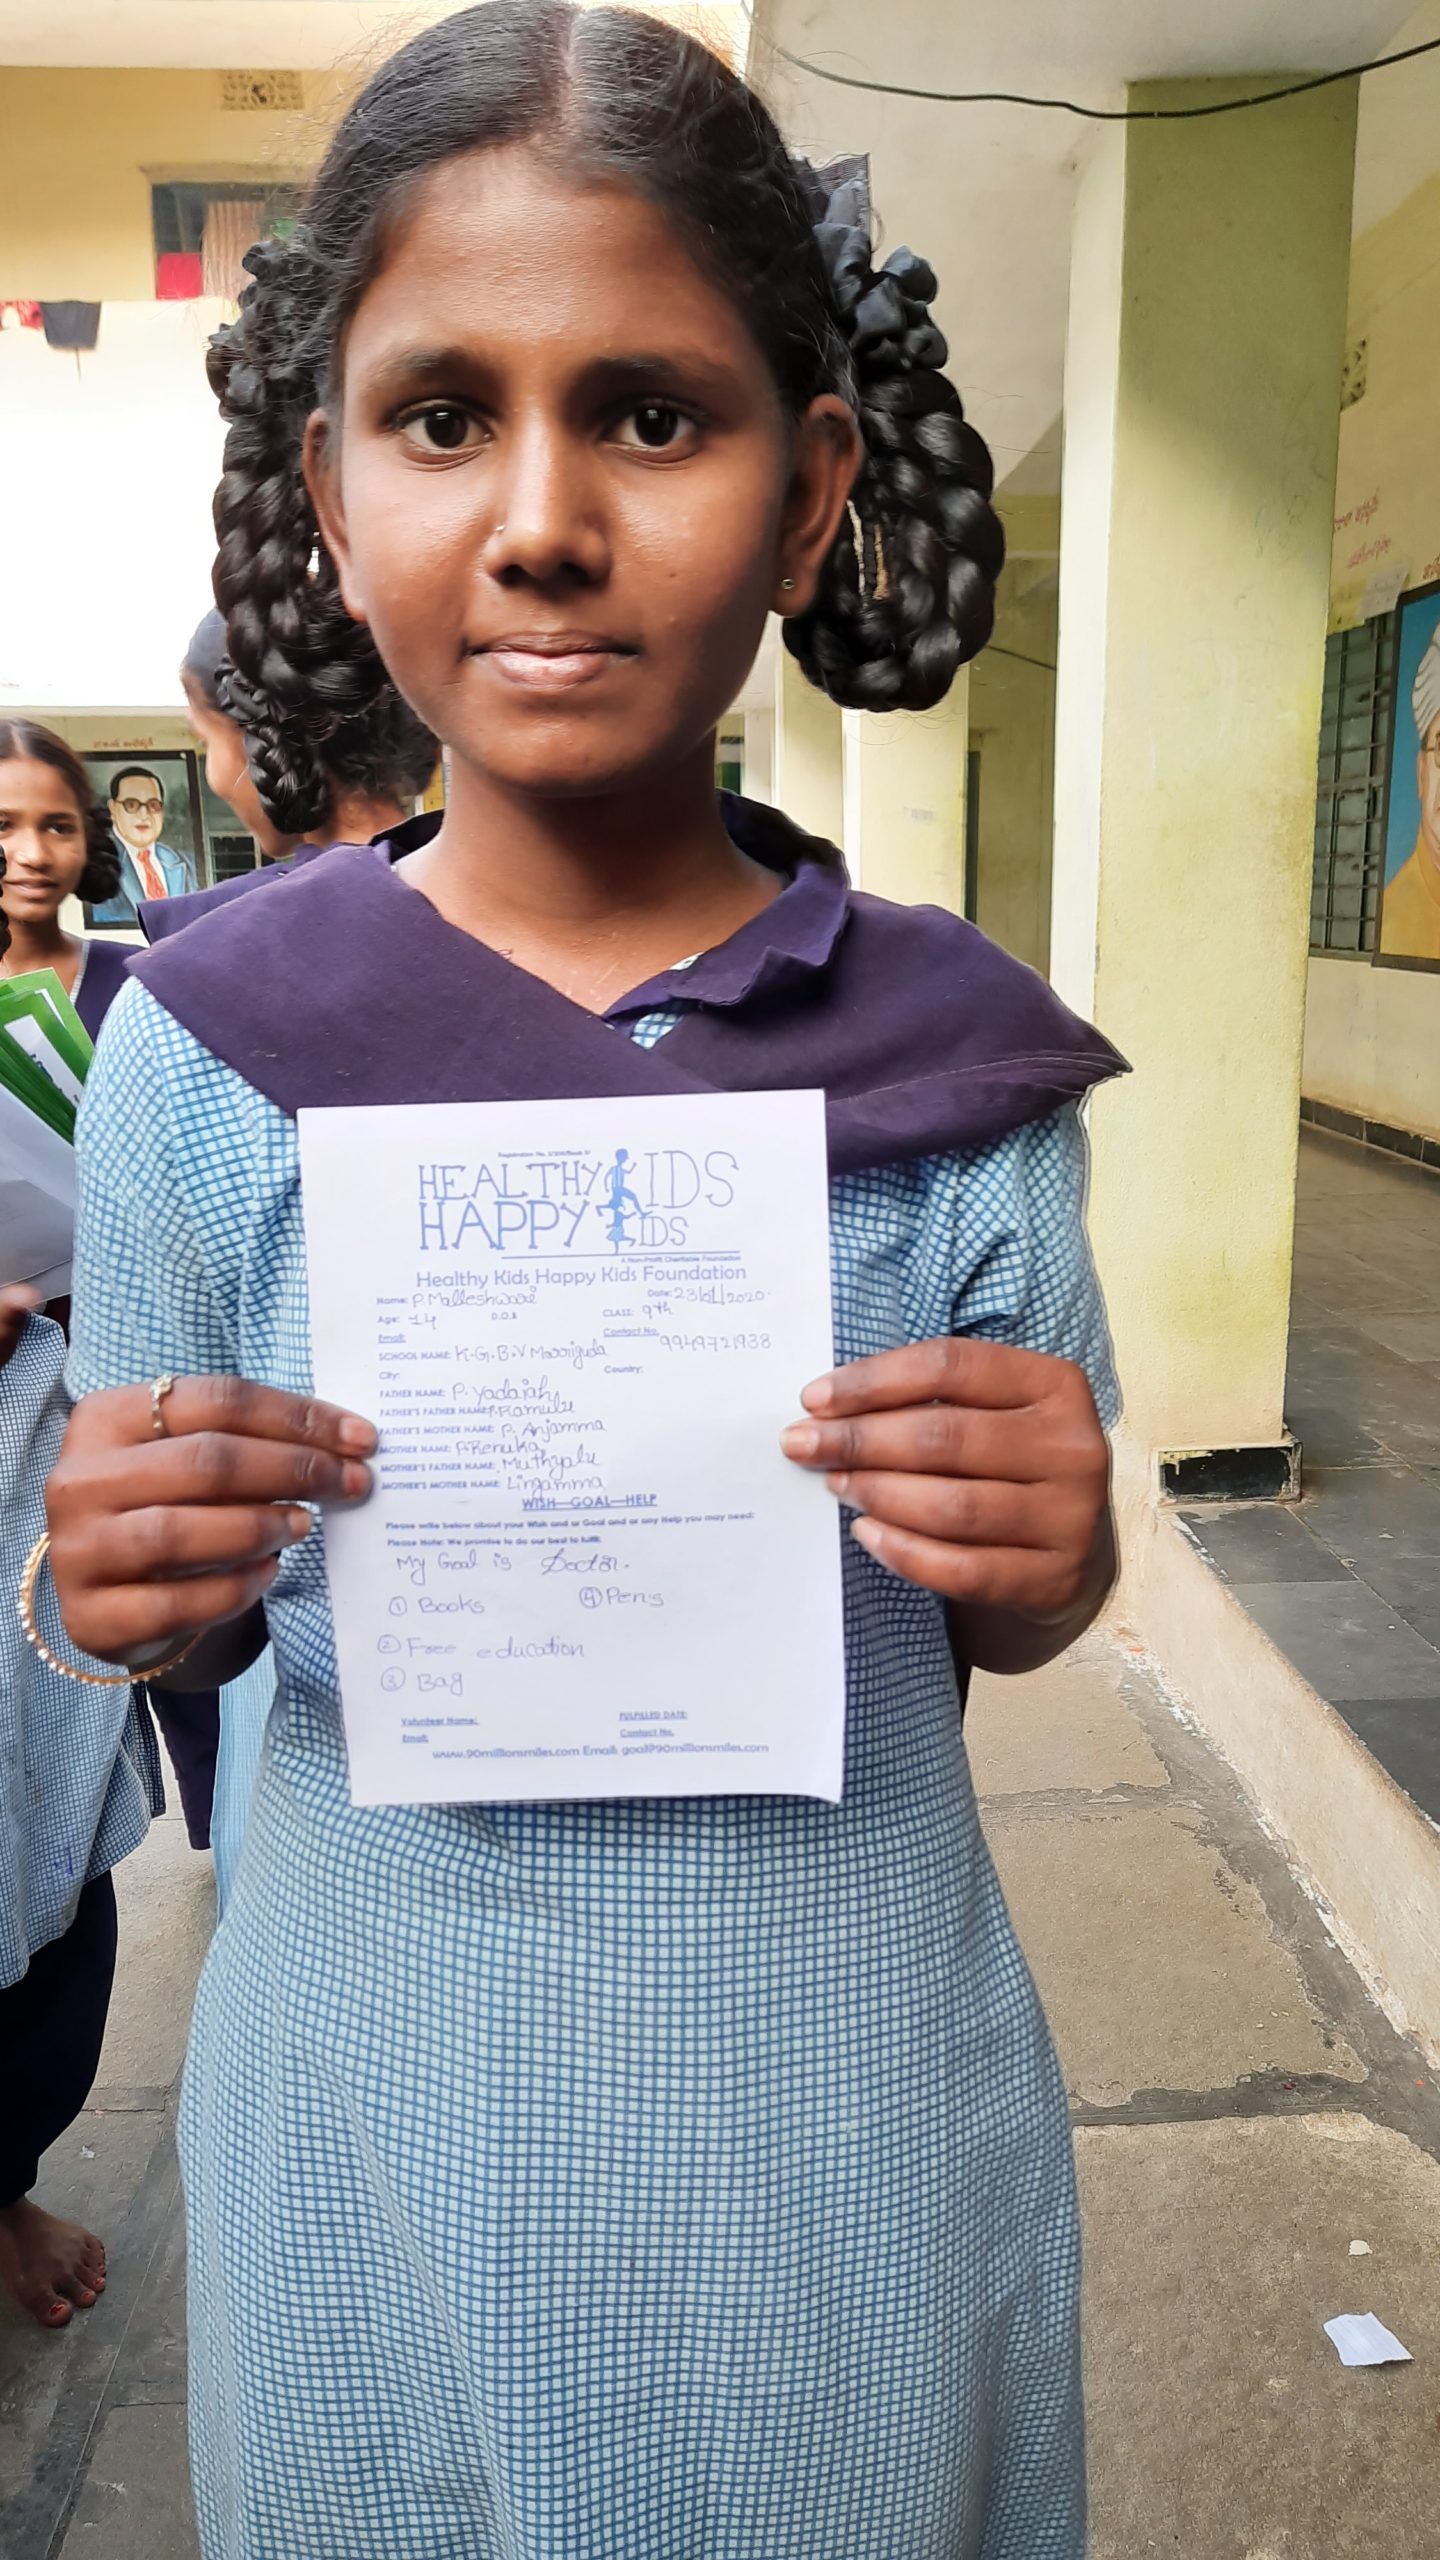 Registration No.
HEALTHY KIDS
HAPPY KIDS
A Non-Profit Charitable Foundation
Healthy Kids Happy Kids Foundation
Name: P. Malleshwari Date: 23/01/2020.
Age: 14 D.O.B CLASS: 9th
Email: Contact No. 9949721938
SCHOOL NAME: K.G.B.V Marriguda
City: Country:
FATHER NAME: P. Yadaiah
FATHER'S FATHER NAME: P. Ramulu
FATHER'S MOTHER NAME: P. Anjamma
MOTHER NAME: P. Renuka
MOTHER'S FATHER NAME: Muthyalu
MOTHER'S MOTHER NAME: Lingamma
WISH—GOAL—HELP
Please write below about your Wish and or Goal and or any Help you may need:
Please Note: We promise to do our best to fulfil
My Goal is Doctor.
① Books ④ Pens
② Free education
③ Bag
Volunteer Name: FULFILLED DATE:
Email: Contact No.
www.90millionsmiles.com Email: goal@90millionsmiles.com